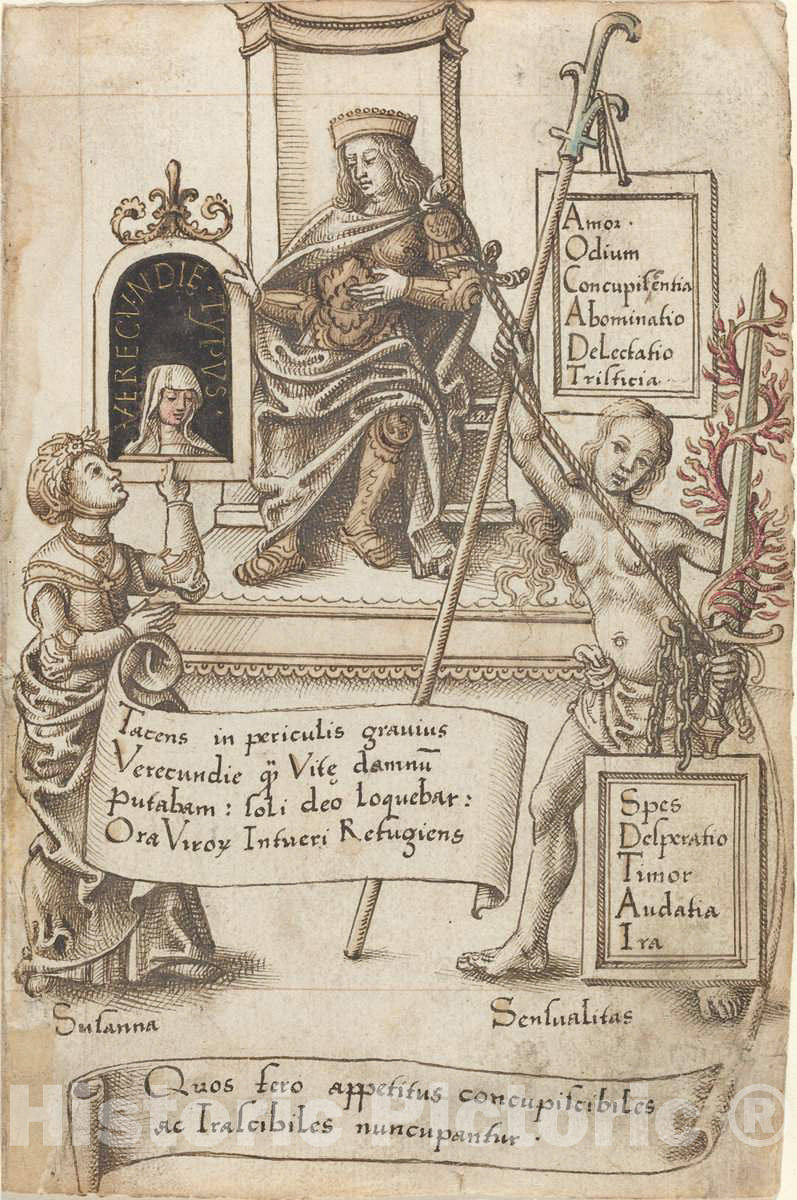 VERECVNDIE · TYPVS ·
Amor ·
Odium
Concupiscentia
Abominatio
Delectatio
Tristicia ·
Tacens in periculis gravius
Verecundie q̃ Vitę damnū
Putabam : soli deo loquebar :
Ora Viroꝝ Intueri Refugiens
Spes
Desperatio
Timor
Audatia
Ira
Susanna
Sensualitas
Quos fero appetitus concupiscibiles
ac Irascibiles nuncupantur ·
Historic Pictoric ®